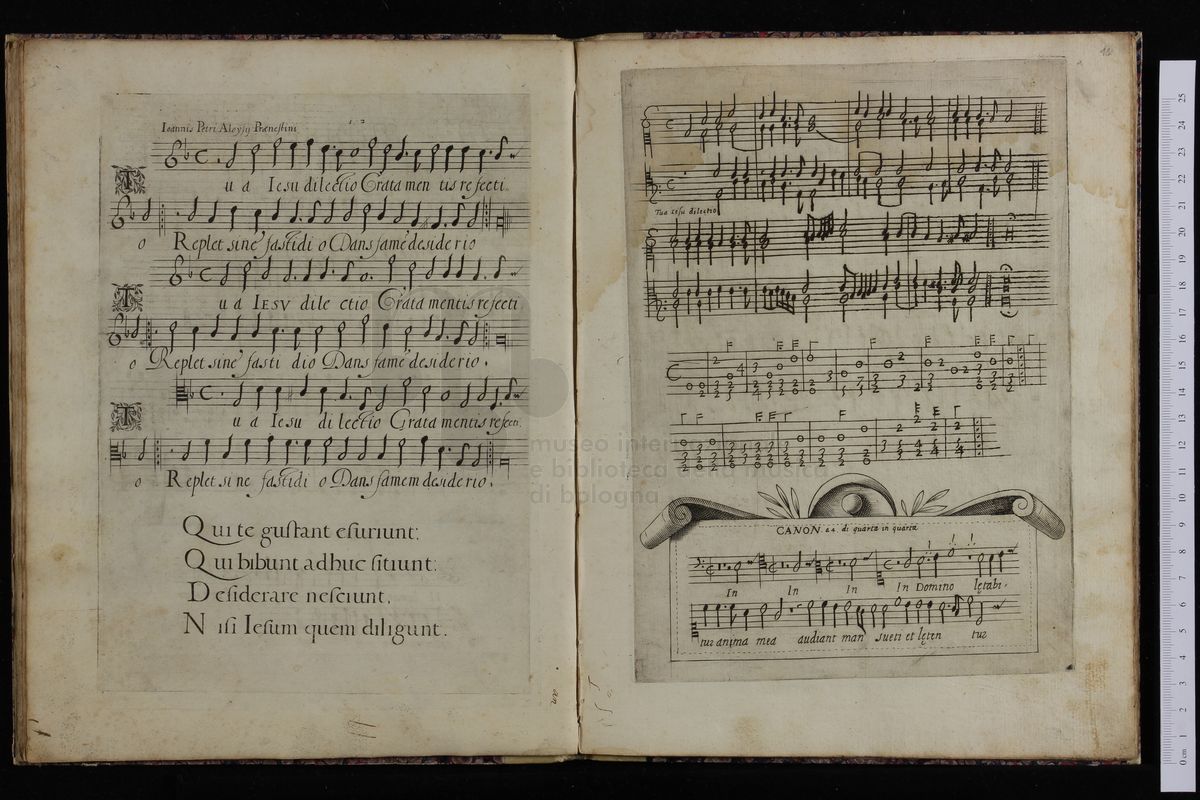 Ioannis Petri Aloysij Prænestini
T u a Iesu dilectio Grata men tis refecti
o Replet sine fastidi o Dans famē desiderio
T u a IESV dile ctio Grata mentis refecti
o Replet sine fasti dio Dans famē desiderio.
T u a Iesu di lectio Grata mentis refecti.
o Replet si ne fastidi o Dans famem desiderio.
Qui te gustant esuriunt:
Qui bibunt adhuc sitiunt:
Desiderare nesciunt,
Nisi Iesum quem diligunt.
an
Tua Iesu dilectio
CANON a 4. di quarta in quarta
In In In In Domino lętabi.
tur anima mea audiant man sueti et lęten tur
museo inter
e biblioteca della musica
di bologna
0 cm 1 2 3 4 5 6 7 8 9 10 11 12 13 14 15 16 17 18 19 20 21 22 23 24 25